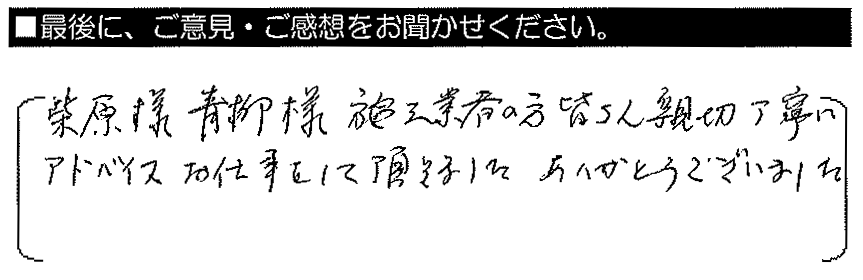 ■最後に、ご意見・ご感想をお聞かせください。
柴原様 青柳様 施工業者の方 皆さん親切丁寧に
アドバイス お仕事をして頂きました ありがとうございました